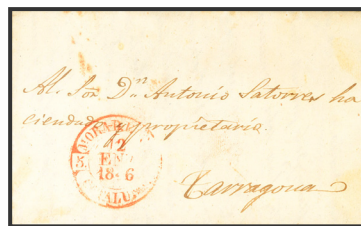 Al. Sor. Dn. Antonio Satorres ha
ciendado y propietario.
12
ENE
5.
Tarragona